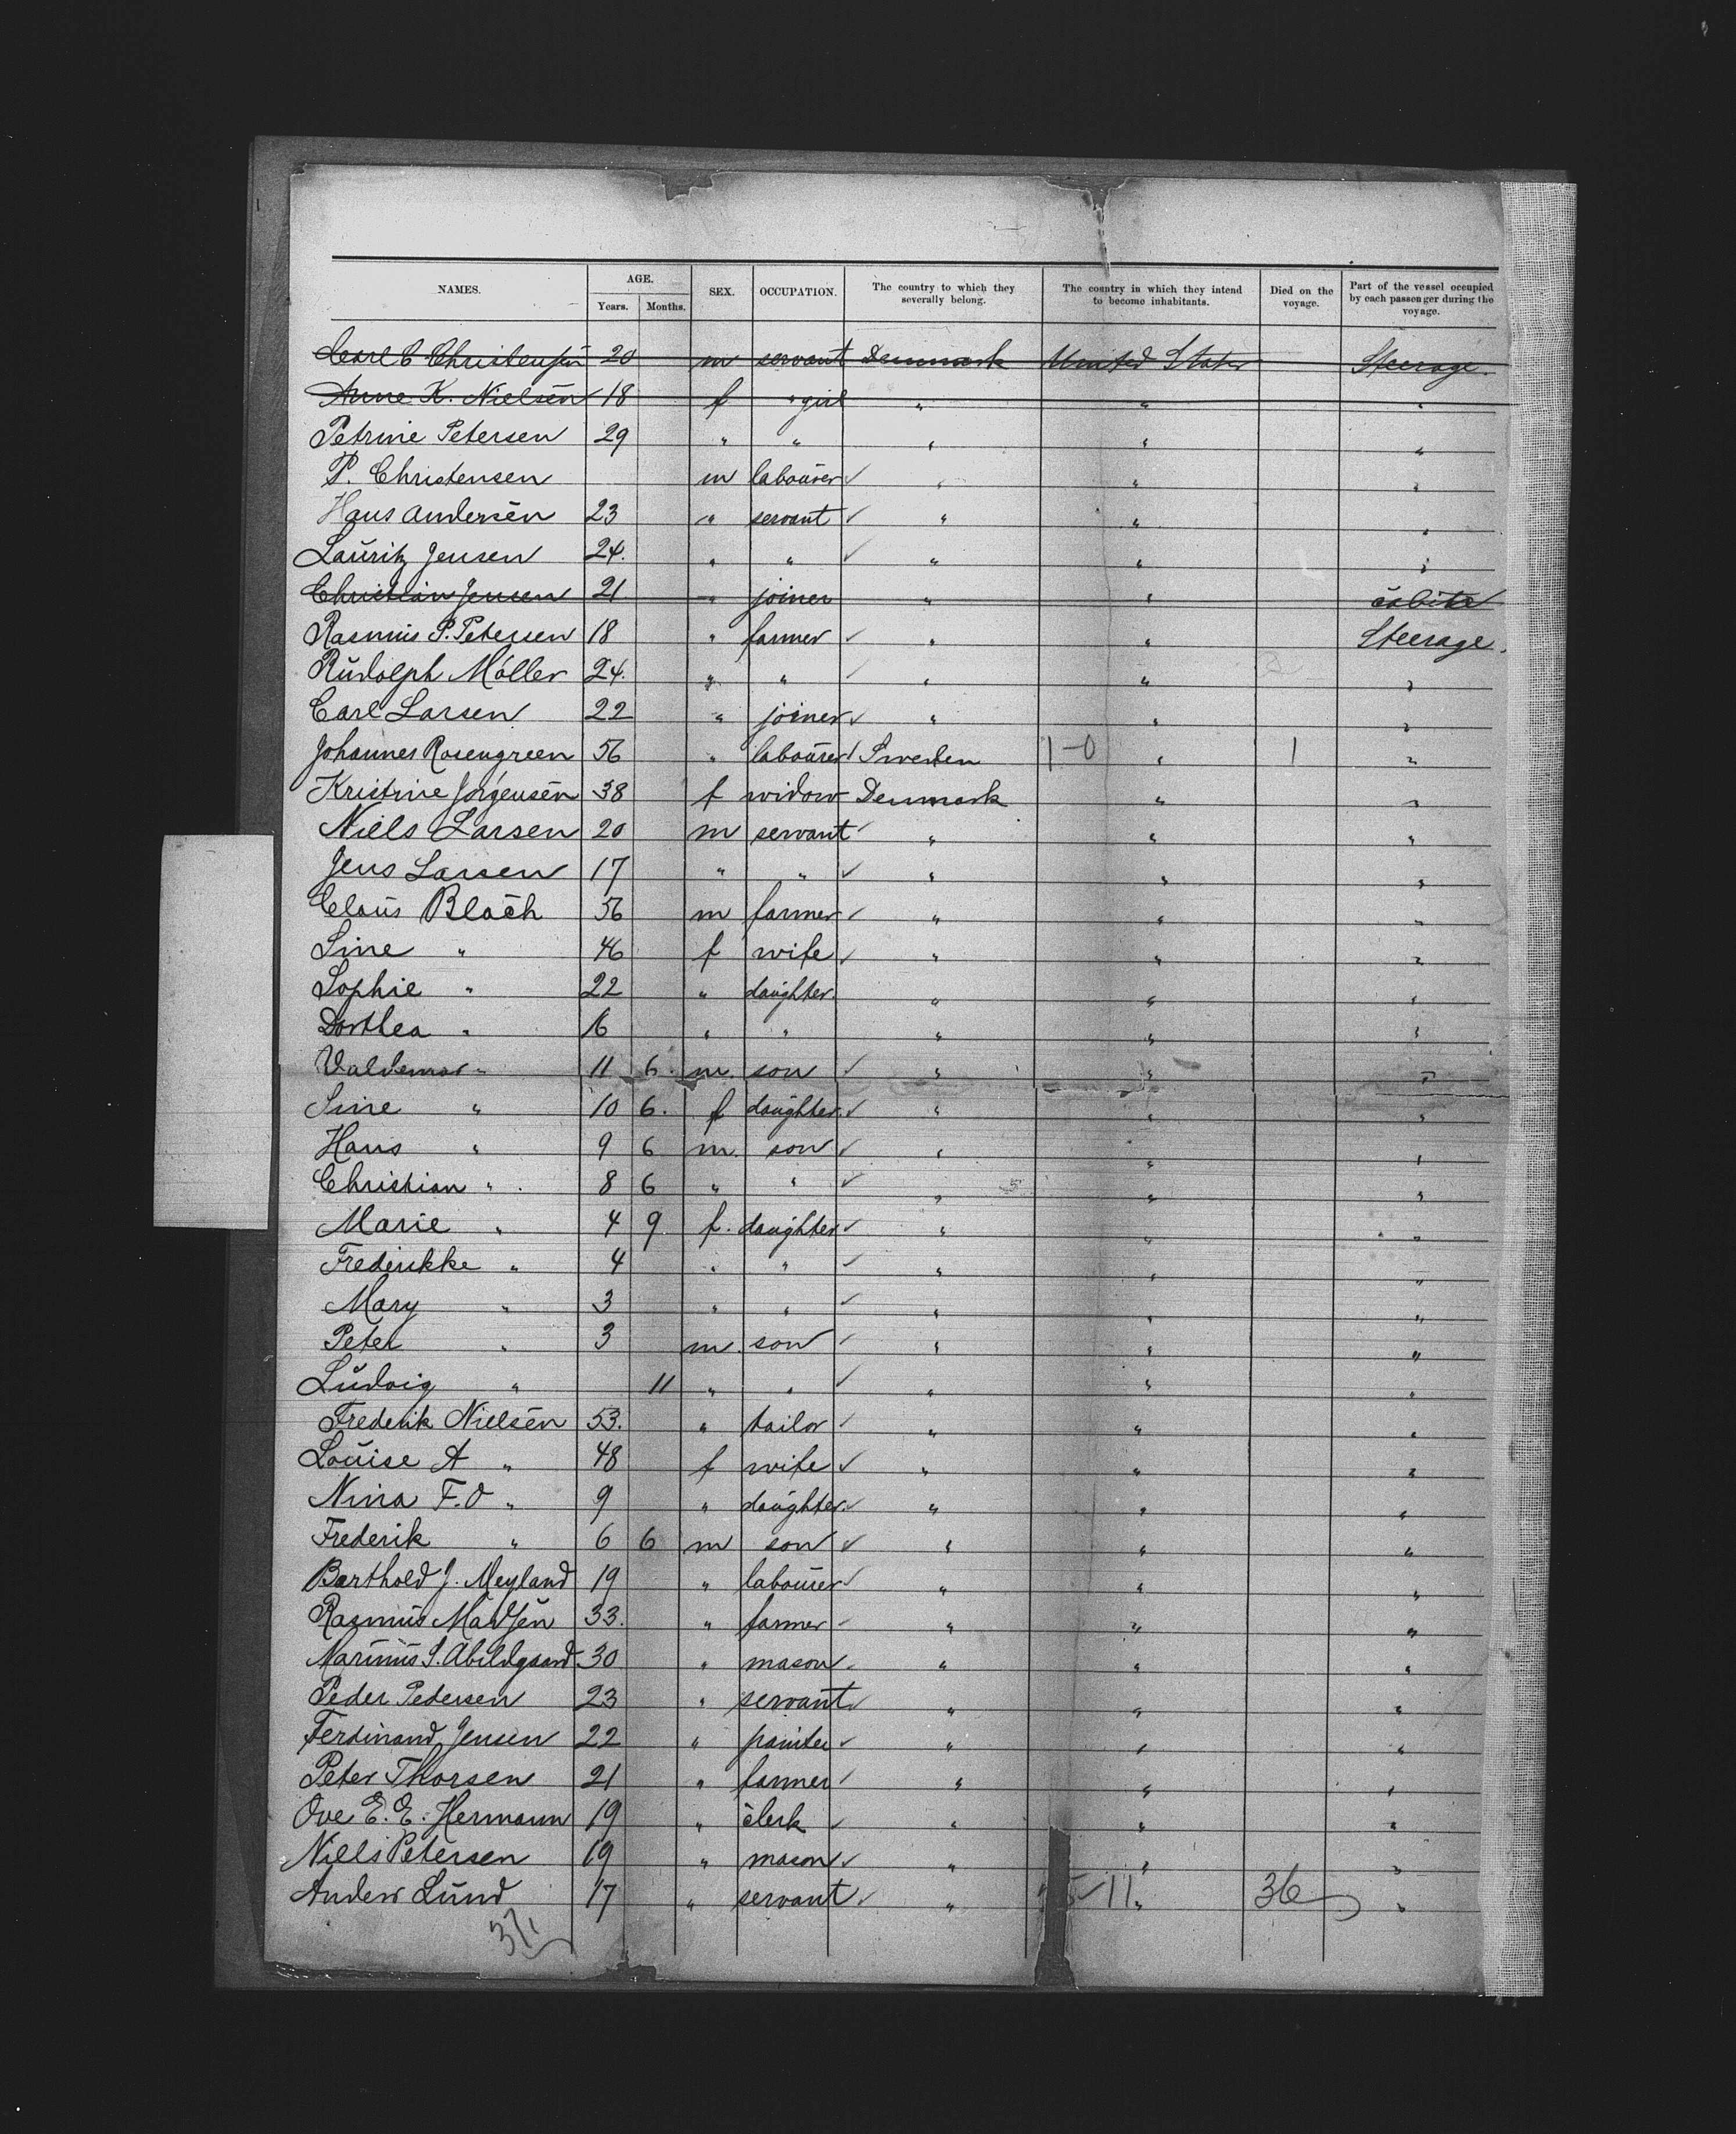 NAMES. AGE. Years. Months. SEX. OCCUPATION. The country to which they severally belong. The country in which they intend to become inhabitants. Died on the voyage. Part of the vessel occupied by each passenger during the voyage.
Carl C Christensen 20 m servant Denmark United States Steerage.
Anne K. Nielsen 18 f " girl " " "
Petrine Petersen 29 " " " " "
P. Christensen m labourer ✓ " " "
Hans Andersen 23 " servant ✓ " " "
Lauritz Jensen 24. " " ✓ " " "
Christian Jensen 21 " joiner " "
Rasmus P. Petersen 18 " farmer ✓ " " Steerage.
Rudolph Möller 24. " " ✓ " " "
Carl Larsen 22 " joiner ✓ " " "
Johannes Rosengreen 56 " labourer Sweden 1-0 " 1 "
Kristine Jörgensen 38 f widow Denmark " "
Niels Larsen 20 m servant ✓ " " "
Jens Larsen 17 " " ✓ " " "
Claus Bloch 56 m farmer ✓ " " "
Sine " 46 f wife ✓ " " "
Sophie " 22 " daughter. " " "
Dorthea " 16 " " " " "
Valdemar " 11 6. m. son ✓ " " "
Sine " 10 6. f daughter. ✓ " " "
Hans " 9 6 m. son ✓ " " "
Christian " 8 6 " " ✓ " " "
Marie " 4 9 f. daughter ✓ " " "
Frederikke " 4 " " ✓ " " "
Mary " 3 " " ✓ " " "
Peter " 3 m. son ✓ " " "
Ludvig " 11 " " ✓ " " "
Frederik Nielsen 53. " tailor ✓ " " "
Louise A " 48 f wife ✓ " " "
Nina F.O " 9 " daughter. ✓ " " "
Frederik " 6 6 m son ✓ " " "
Barthold J. Meyland 19 " labourer ✓ " " "
Rasmus Madsen 33. " farmer ✓ " " "
Marinus S. Abildgaard 30 " mason ✓ " " "
Peder Pedersen 23 " servant ✓ " " "
Ferdinand Jensen 22 " painter ✓ " " "
Peter Thorsen 21 " farmer ✓ " " "
Ove E. E. Hermann 19 " clerk ✓ " " "
Niels Petersen 19 " mason ✓ " " "
Anders Lund 17 " servant ✓ " 11 " 36 "
37